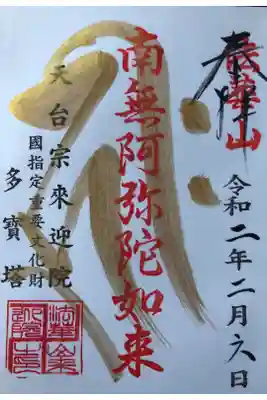 奉拝
令和二年二月六日
南無阿弥陀如来
天台宗來迎院
國指定重要文化財
多寶塔